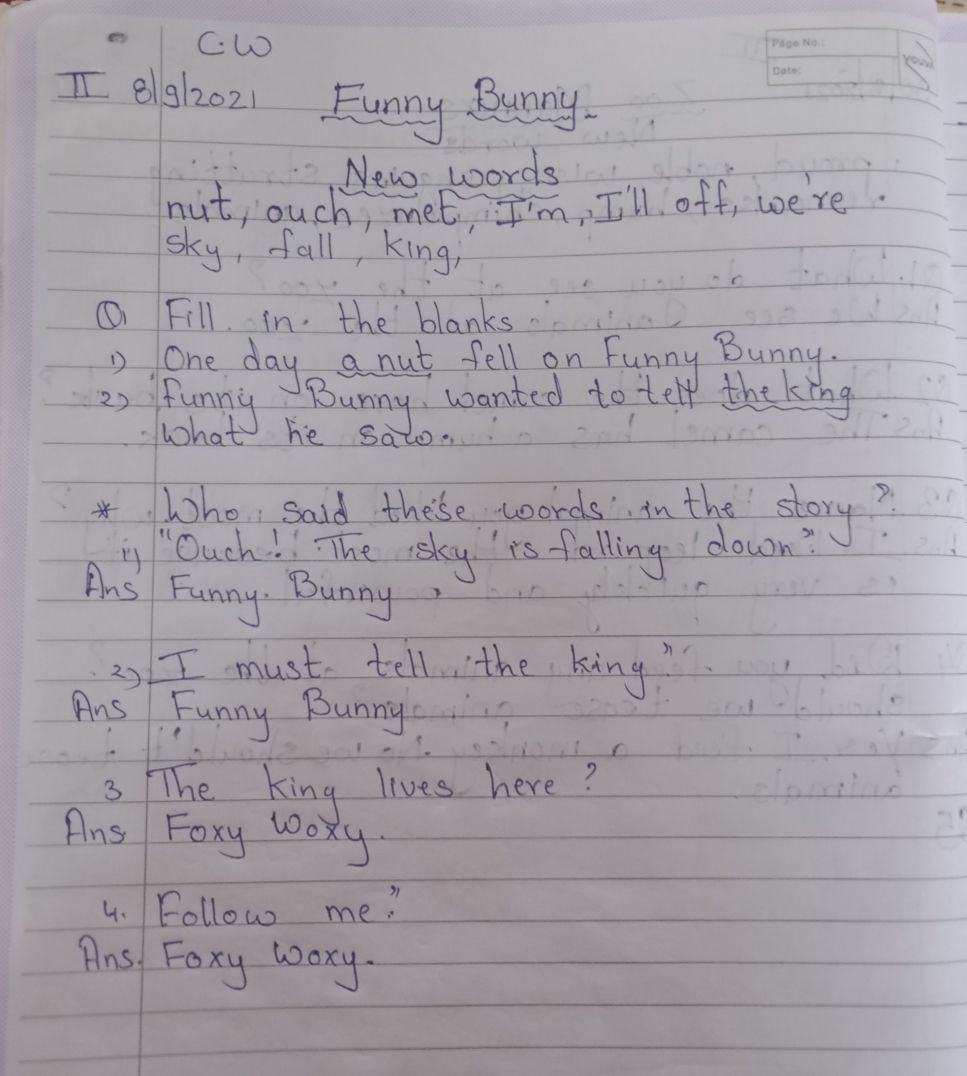 C.W
Page No.:
Date:
II 8/9/2021 Funny Bunny.
New words
nut, ouch, met, I'm, I'll off, we're.
sky, fall, king,
Q Fill in the blanks.
1) One day a nut fell on Funny Bunny.
2) funny Bunny wanted to tell the king
what he saw.
* Who said these words in the story?
1) "Ouch! The sky is falling down".
Ans Funny Bunny.
2) I must tell the king".
Ans Funny Bunny
3 The king lives here?
Ans Foxy Woxy.
4. Follow me".
Ans. Foxy Woxy.